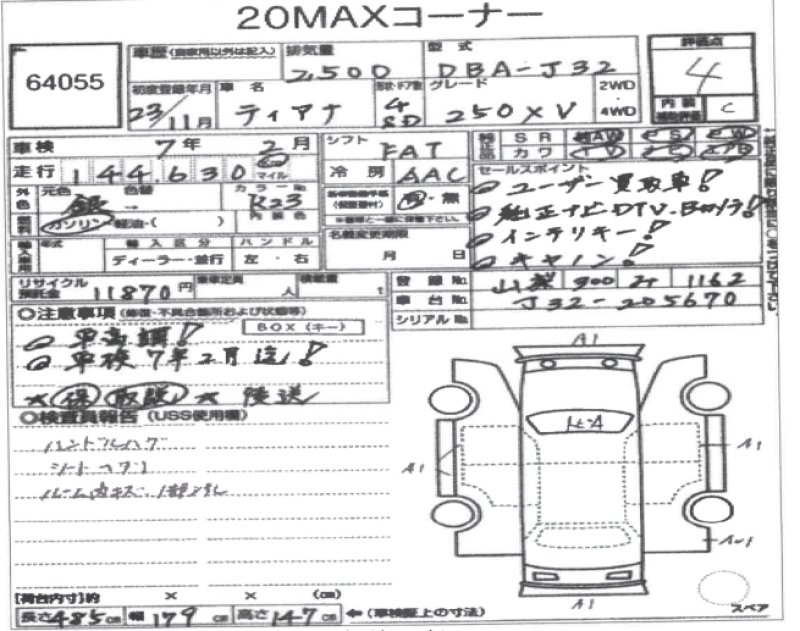 20MAXコーナー
64055
車歴 (自家用以外は記入) 排気量 2,500 型式 DBA-J32
初度登録年月 23/11月 車名 ティアナ 形状・ドア数 4 SD グレード 250XV 2WD 4WD
評価点 4
内装 補助評価 C
車検 7年 2月 シフト FAT
走行 144,630 マイル 冷房 AAC
純正品 SR AW PS PW
カワ TV
外色 元色 銀 色替 カラーNo. K23 内装色
燃料 ガソリン・軽油・( )
新車整備手帳 (保証書付) 有・無
※車輌と一緒に確認下さい。
輸入車用 年式 輸入区分 ディーラー・並行 ハンドル 左・右
名義変更期限 月 日
セールスポイント
ユーザー買取車!
純正ナビDTV.Bカメラ!
インテリキー!
キャノン!
リサイクル預託金 11870円 乗車定員 人 積載量 t
登録No. 山梨 300 1162
車台No. J32-205670
シリアルNo.
○注意事項 (修復・不具合箇所および状態等)
BOX (キー)
車高調!
車検7年2月迄!
☆保 取説☆ 陸送
○検査員報告 (USS使用欄)
ハンドルハゲ
シートヘタリ
ルーム内キズ
A1
トビA
A1
A1
A1
スペア
【荷台内寸】約 × × (cm)
長さ485cm 幅179cm 高さ147cm ←(車検証上の寸法)